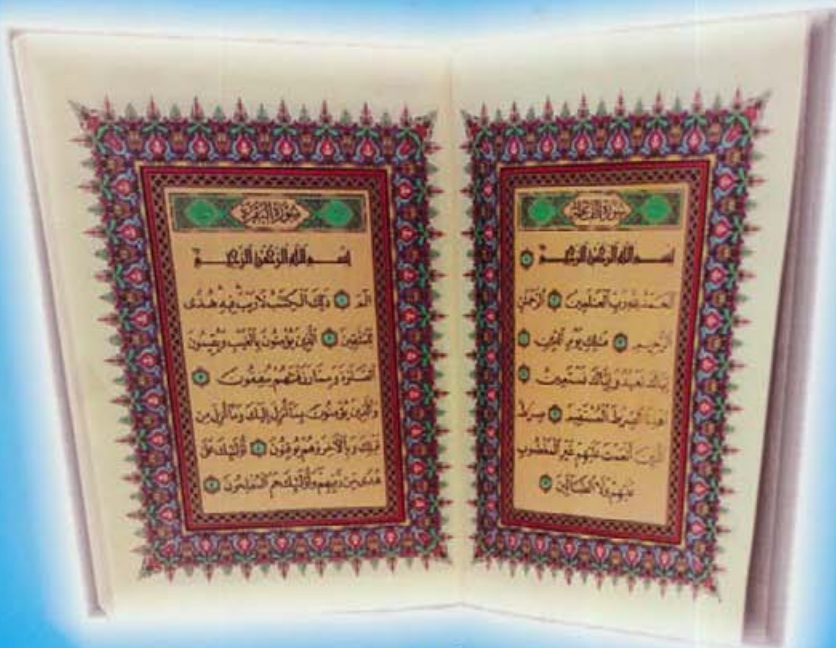 سورة الفاتحة
بسم الله الرحمن الرحيم ۝
الحمد لله رب العلمين ۝ الرحمن
الرحيم ۝ ملك يوم الدين ۝
إياك نعبد وإياك نستعين ۝
اهدنا الصرط المستقيم ۝ صرط
الذين أنعمت عليهم غير المغضوب
عليهم ولا الضالين ۝
سورة البقرة
بسم الله الرحمن الرحيم
الم ۝ ذلك الكتب لا ريب فيه هدى
للمتقين ۝ الذين يؤمنون بالغيب ويقيمون
الصلوة ومما رزقنهم ينفقون ۝
والذين يؤمنون بما أنزل إليك وما أنزل من
قبلك وبالأخرة هم يوقنون ۝ أولئك على
هدى من ربهم وأولئك هم المفلحون ۝